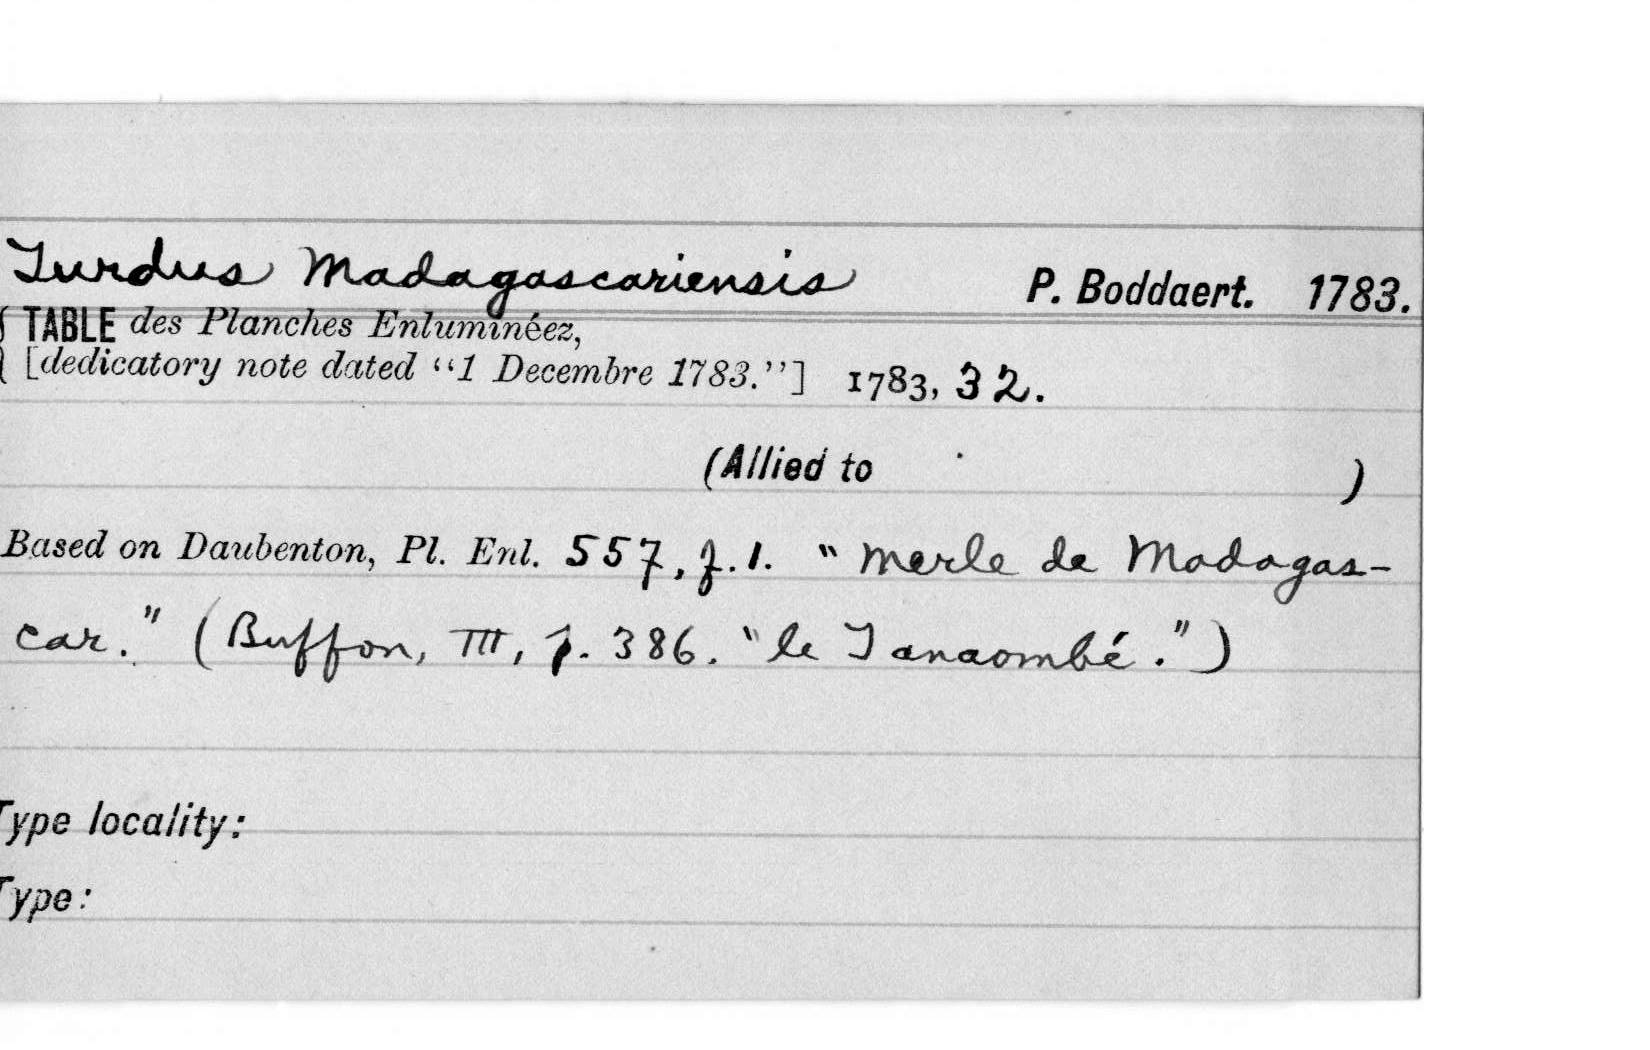 Turdus Madagascariensis P. Boddaert. 1783.
TABLE des Planches Enluminéez,
[dedicatory note dated “1 Decembre 1783.”] 1783, 32.
(Allied to )
Based on Daubenton, Pl. Enl. 557, f.1. "Merle de Madagas-
car." (Buffon, III, p. 386. "le Tanaombé.")
Type locality:
Type: